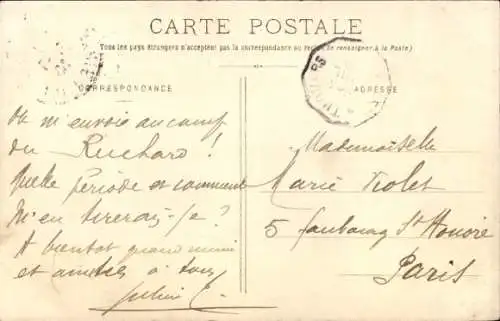 CARTE POSTALE
Tous les pays étrangers n'acceptent pas la correspondance au recto (se renseigner à la Poste)
CORRESPONDANCE
ADRESSE
On m'envoie au camp
du Ruchard !
Quelle période et comment
m'en tirerai-je ?
A bientôt quand même
et amitiés à tous
Mademoiselle
Marie Violet
5 faubourg St Honoré
Paris